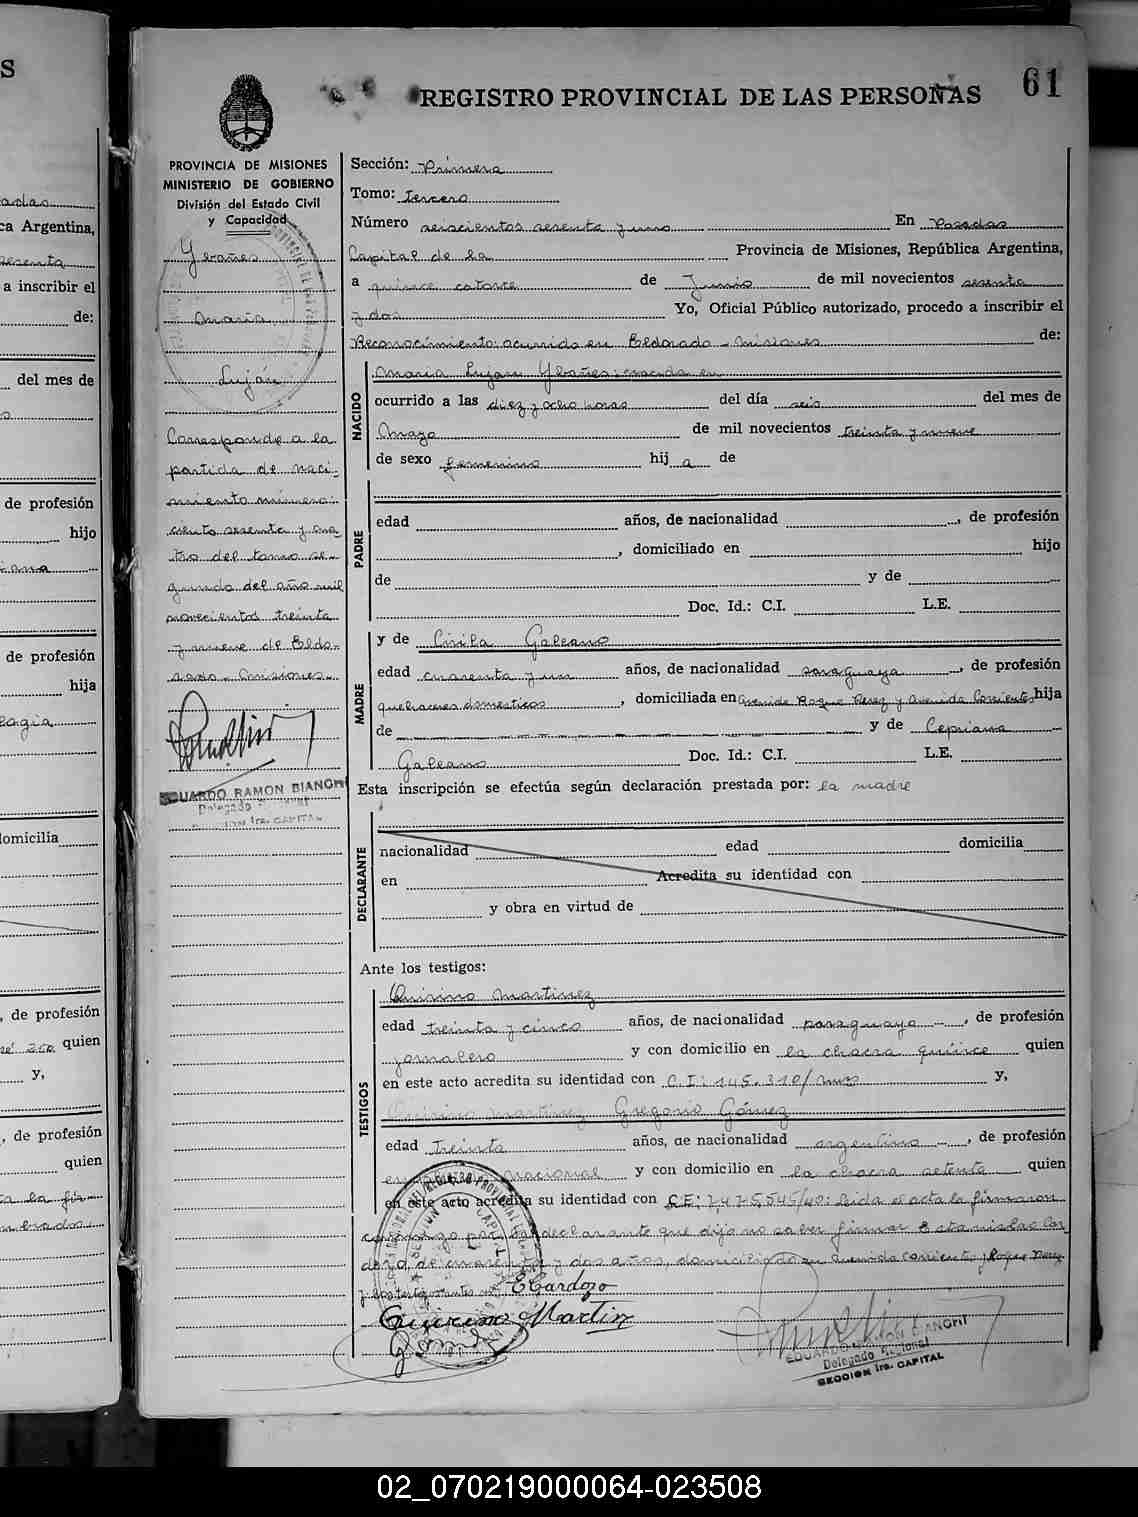 REGISTRO PROVINCIAL DE LAS PERSONAS
61
PROVINCIA DE MISIONES
MINISTERIO DE GOBIERNO
División del Estado Civil
y Capacidad
Ybañes
María
Luján
Corresponde a la
partida de naci-
miento número:
ciento sesenta y cua-
tro del tomo se-
gundo del año mil
novecientos treinta
y nueve de Eldo-
rado - Misiones.-
EDUARDO RAMON BIANCHI
Delegado Regional
SECCION 1ra. CAPITAL
Sección: Primera
Tomo: Tercero
Número seiscientos sesenta y uno En Posadas
Capital de la Provincia de Misiones, República Argentina,
a quince catorce de Junio de mil novecientos sesenta
y dos Yo, Oficial Público autorizado, procedo a inscribir el
Reconocimiento: ocurrido en Eldorado - Misiones de:
NACIDO
María Lujan Ybañes: nacida en
ocurrido a las diez y ocho horas del día seis del mes de
Mayo de mil novecientos treinta y nueve
de sexo femenino hija de
PADRE
edad años, de nacionalidad , de profesión
, domiciliado en hijo
de y de
Doc. Id.: C.I. L.E.
MADRE
y de Cirila Galeano
edad cuarenta y un años, de nacionalidad paraguaya , de profesión
quehaceres domesticos , domiciliada en Avenida Roque Perez y Avenida Corrientes hija
de y de Cepriana
Galeano Doc. Id.: C.I. L.E.
Esta inscripción se efectúa según declaración prestada por: la madre
DECLARANTE
nacionalidad edad domicilia
en Acredita su identidad con
y obra en virtud de
Ante los testigos:
TESTIGOS
Quirino Martinez
edad treinta y cinco años, de nacionalidad paraguayo , de profesión
jornalero y con domicilio en la chacra quince quien
en este acto acredita su identidad con C.I: 145.310/ y,
Quirino Martinez Gregorio Gómez
edad Treinta años, de nacionalidad argentino , de profesión
nacional y con domicilio en la chacra setenta quien
en este acto acredita su identidad con Leida el acta la firmaron
conmigo por la declarante que dijo no saber firmar Estanislao Car
dozo, de cuarenta y dos años, domiciliado en Avenida Corrientes y Roque Perez
E Cardozo
Quirino Martin
EDUARDO RAMON BIANCHI
Delegado Regional
SECCION 1ra. CAPITAL
S
Posadas
ca Argentina,
sesenta
a inscribir el
de:
del mes de
de profesión
hijo
de profesión
hija
domicilia
, de profesión
quien
y,
, de profesión
quien
02_070219000064-023508